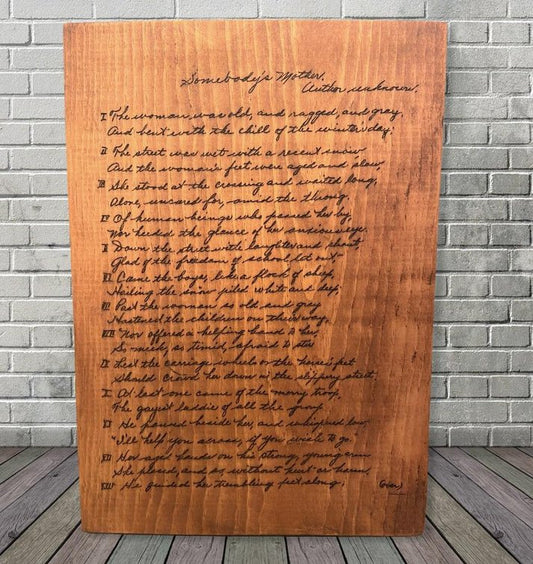 Somebody's Mother.
Author unknown.
I The woman was old, and ragged, and gray,
And bent with the chill of the winter day;
II The street was wet with a recent snow
And the woman's feet were aged and slow,
III She stood at the crossing and waited long,
Alone, uncared for, amid the throng,
IV Of human beings who passed her by,
Nor heeded the glance of her anxious eye.
V Down the street with laughter and shout,
Glad of the freedom of school let out,"
VI Came the boys, like a flock of sheep,
Hailing the snow piled white and deep;
VII Past the woman so old and gray
Hastened the children on their way,
VIII Nor offered a helping hand to her,
So meek, so timid, afraid to stir
IX Lest the carriage wheels or the horse's feet
Should crowd her down in the slippery street;
X At last one came of the merry troop,
The gayest laddie of all the group
XI He paused beside her, and whispered low,
"I'll help you across, if you wish to go.
XII Her aged hands on his strong, young arm
She placed, and so, without hurt or harm,
XIII He guided her trembling feet along,
(over)